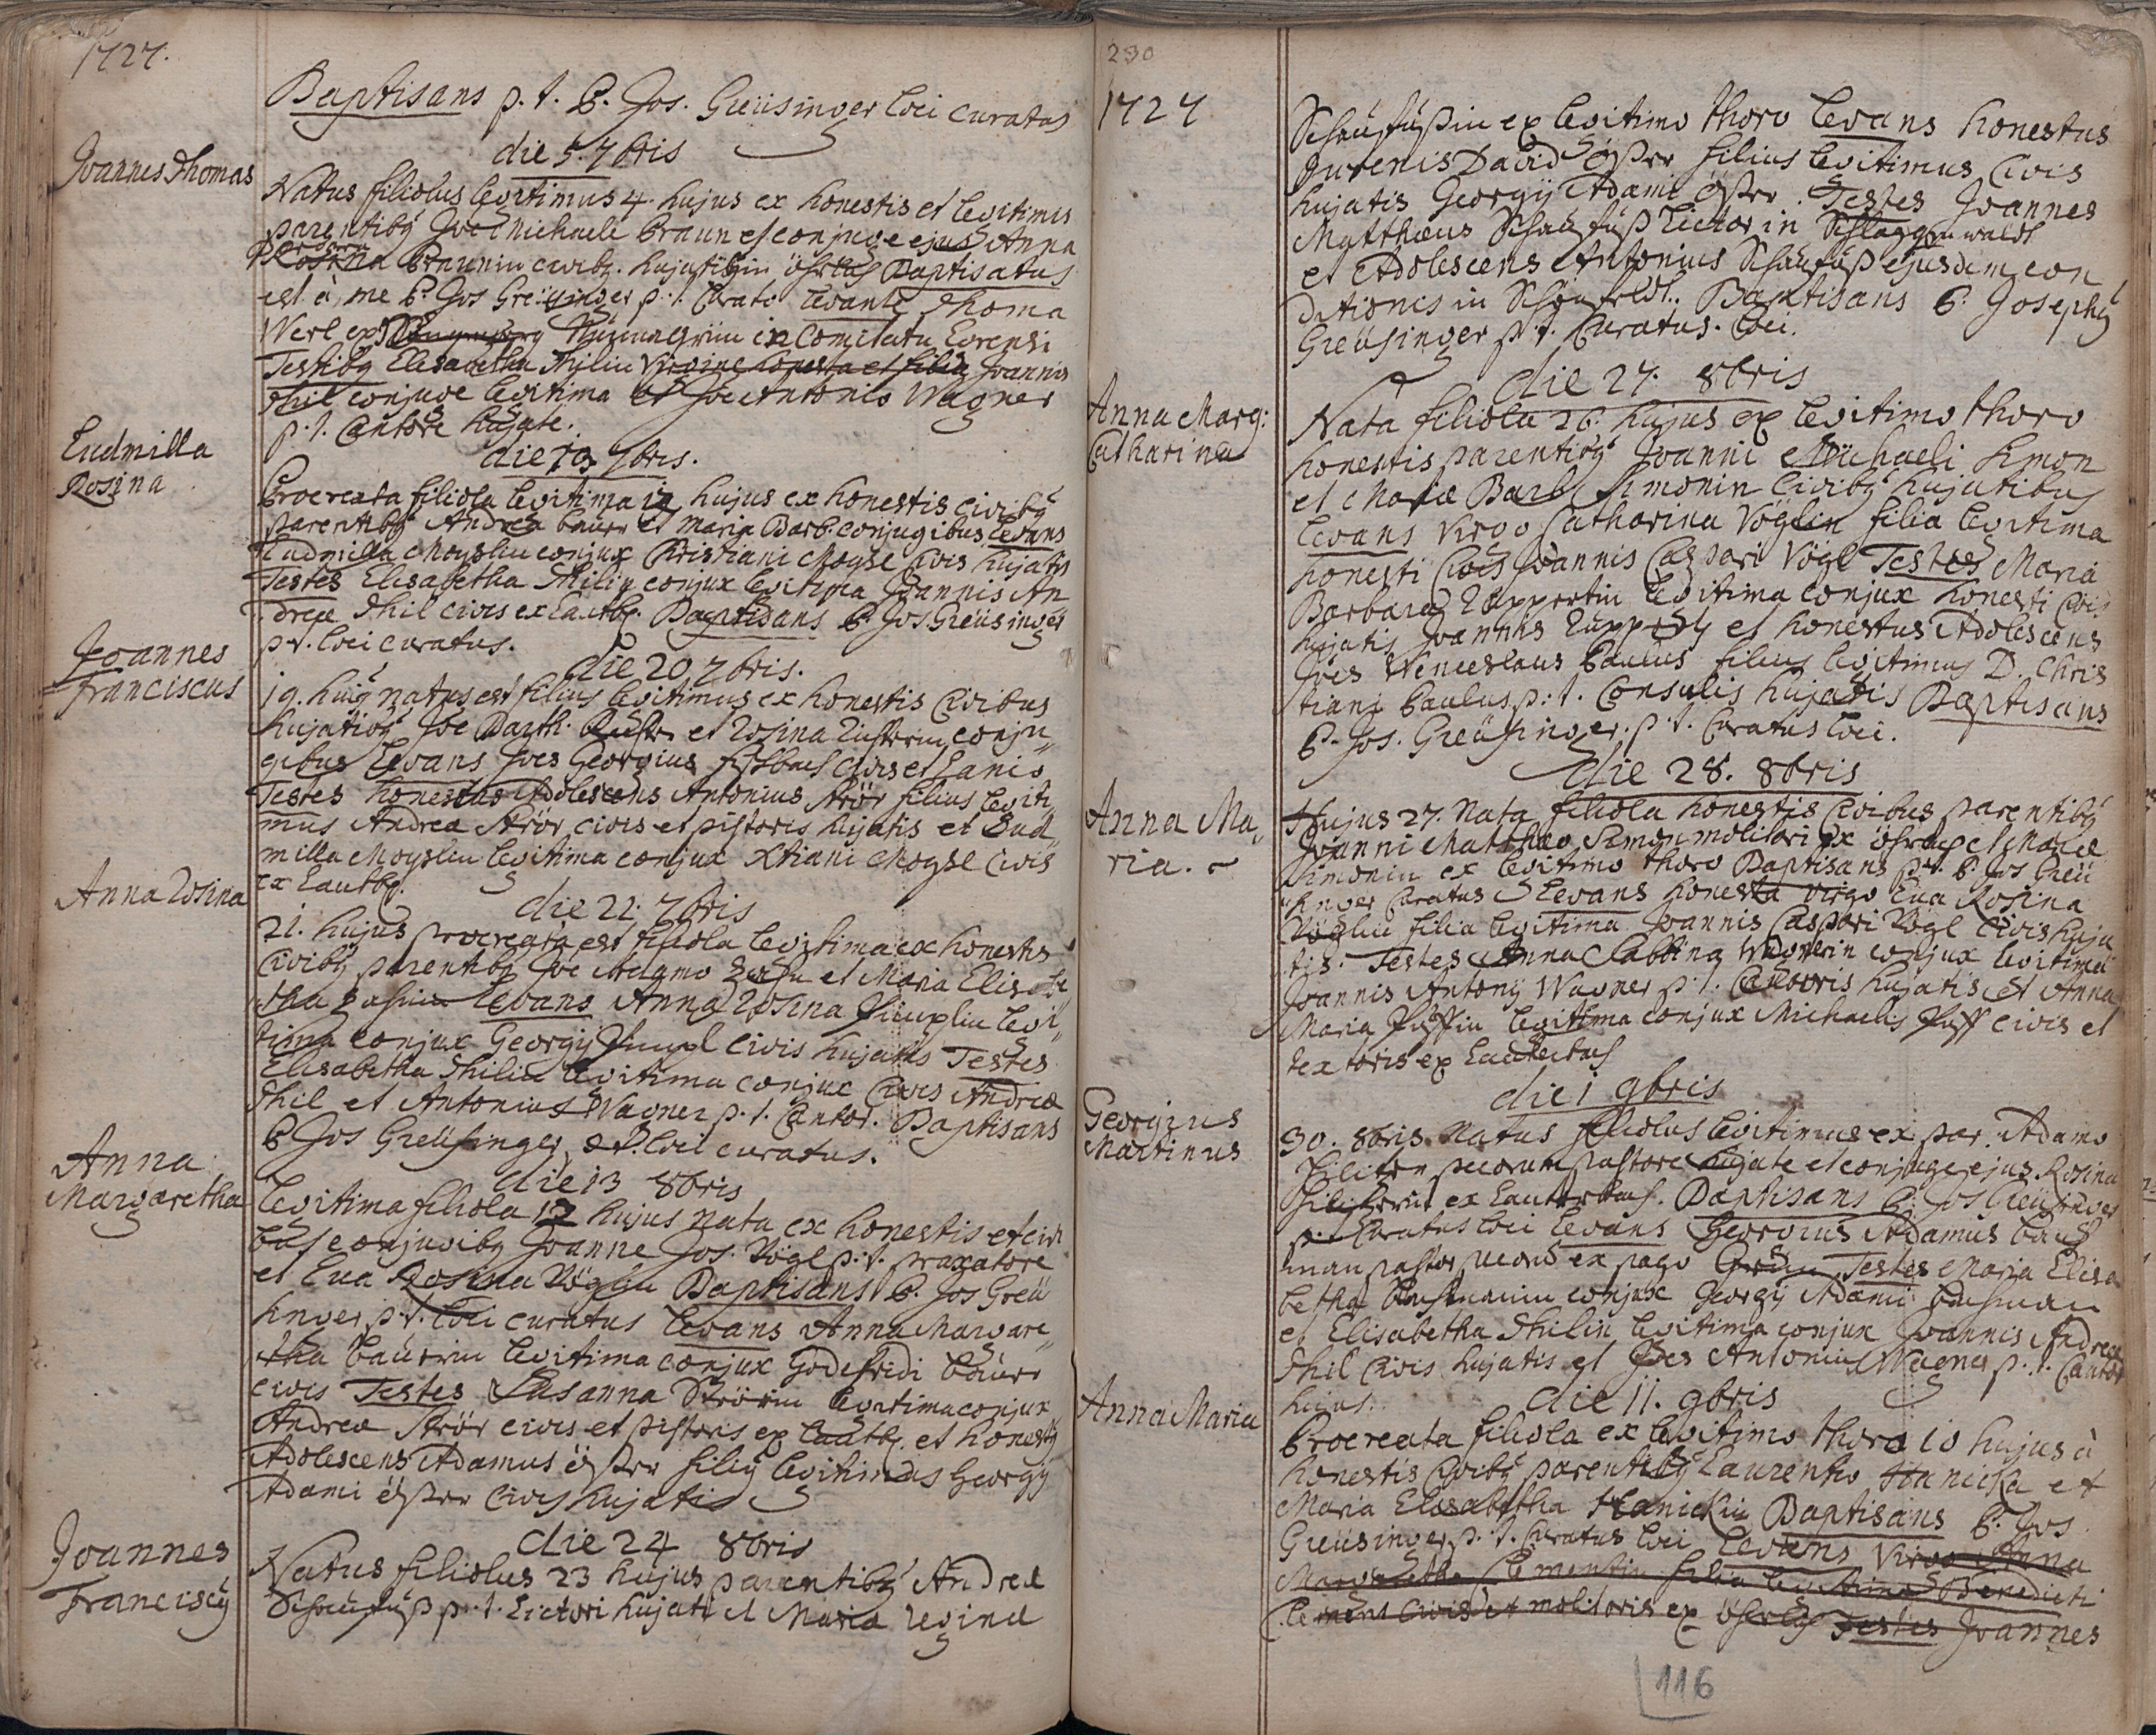 1727.
Baptisans p. t. P. Jos. Greüsinger loci curatus
die 5. 7bris
Joannes Thomas
Natus filiolus legitimus 4. hujus ex honestis et legitimis
parentibg Joe Michaele Braun et conjuge ejus Anna
Barbara
Rosina Braunin civibg. hujatibg in Baptisatus
est à me P. Jos Greüsinger p. t. Curato levante Thoma
Werl ex in Comitatu Egrensi
Testibg Elisabetha Thilin Virgine honesta et filia Joannis
Thil conjuge legitima et Joe Antonio Wagner
p. t. Cantore hujate.
Ludmilla
Rosina
die 13 7bris.
Procreata filiola legitima 12 hujus ex honestis civibg
parentibg Andrea Baurr et Maria Barb. conjugibus levans
Ludmilla Moyslin conjux Christiani Moysl Civis hujatis
Testes Elisabetha Thilin conjux legitima Joannis An
dreæ Thil civis ex Lautbg. Baptisans P. Jos. Greüsinger
p. t. loci curatus.
Joannes
Franciscus
die 20. 7bris.
19. hujg natus est filius legitimus ex honestis Civibus
hujatibg Joe Barth. et Rosina conju„
gibus levans Joes Georgius Fischbach civis et Lanio
Testes honestus Adolescens Antonius Strör filius legiti„
mus Andreæ Strör civis et pistoris hujatis et Lud„
milla Moyslin legitima conjux Xtiani Moysl civis
ex Lautbg.
Anna Rosina
die 22. 7bris
21. hujus procreata est filiola legitima ex honestis
Civibg parentibg Joe Adamo et Maria Elisabe„
tha levans Anna Rosina legi„
tima conjux Georgij civis hujatis Testes
Elisabetha Thilin legitima conjux Civis Andreæ
Thil et Antonius Wagner p. t. Cantor. Baptisans
P Jos Greüsinger p. t. loci curatus.
Anna
Margaretha
die 13 8bris
Legitima filiola 12 hujus nata ex honestis et civi
bus conjugibg Joanne Jos. Vögl p. t. praxatore
et Eva Rosina Vöglin Baptisans P. Jos Greü
singer p. t. loci curatus levans Anna Margare„
tha Baurrin legitima conjux Godefridi Baurr
civis Testes Susanna Strörin legitima conjux
Andreæ Strör civis et pistoris ex Lautbg. et honestg
Adolescens Adamus filig legitimus Georgij
Adami civis hujatis
Joannes
Franciscg
die 24 8bris
Natus filiolus 23 hujus parentibg Andreæ
Schaufuß p. t. Lictori hujati et Maria Regina
230
1727
Schaufüßin ex legitimo thoro levans honestus
Juvenis David filius legitimus Civis
hujatis Georgij Adami Testes Joannes
Matthæus Schaufuß Lictor in Schlaggenwaldt
et Adolescens Antonius Schaufuß ejusdem con
ditionis in Schönfeldt. Baptisans P. Josephg
Greüsinger p. t. Curatus loci.
Anna Marg:
Catharina
die 27. 8bris
Nata filiola 26. hujus ex legitimo thoro
honestis parentibg Joanni Michaeli Simon
et Mariæ Barb. Simonin Civibg hujatibus
levans Virgo Catharina Vöglin filia legitima
honesti Civis Joannis Caspari Vögl Testes Maria
Barbara Ruppertin legitima conjux honesti Civis
hujatis Joannis et honestus Adolescens
Joes Wenceslaus Paulus filius legitimus D. Chris
tiani Paulus p: t. Consulis hujatis Baptisans
P. Jos. Greüsinger. p. t. Curatus loci.
Anna Ma„
ria.
die 28. 8bris
Hujus 27. Nata filiola honestis Civibus parentibg
Joanni Matthæo Simon molitori ex et Mariæ
Simonin ex legitimo thoro Baptisans p. t. P. Jos Greü
singer Curatus Levans honesta virgo Eva Rosina
Vöglin filia legitima Joannis Caspari Vögl Civis huja
tis. Testes Anna Sabbina Wagnerin conjux legitima
Joannis Antonij Wagner p. t. Cantoris hujatis et Anna
Maria Puffin legitima conjux Michaelis Puff civis et
textoris ex Lauterbach
Georgius
Martinus
die 1 9bris
30. 8bris natus filiolus legitimus ex par. Adamo
pecorum pastore hujate et conjuge ejus Rosina
ex Lauterbach. Baptisans P. Jos Greüsinger
p. t. Curatus loci levans Georgius Adamus Bach
man pastor pecorum ex pago Grün Testes Maria Elisa
betha Bachmanin conjux Georgij Adami Bachman
et Elisabetha Thilin legitima conjux Joannis Andreæ
Thil Civis hujatis et Joes Antonius Wagner p. t. Cantor
hujus.
Anna Maria
die 11. 9bris
Procreata filiola ex legitimo thoro 10 hujus à
honestis Civibg parentibg Laurentio Hanicka et
Maria Elisabetha Hanickin Baptisans P. Jos
Greüsinger p. t. Curatus loci Levans Virgo Anna
Margaretha Clementin filia legitima Benedicti
Clement Civis et molitoris ex Testes Joannes
116